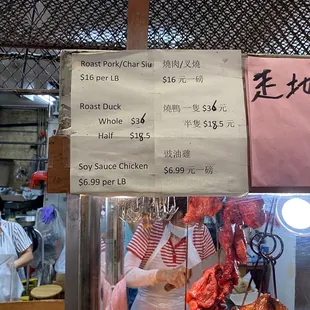 Roast Pork/Char Siu
$16 per LB
燒肉/叉燒
$16 元一磅
Roast Duck
Whole $36
Half $18.5
燒鴨 一隻 $36 元
半隻 $18.5 元
Soy Sauce Chicken
$6.99 per LB
豉油雞
$6.99 元一磅
走地